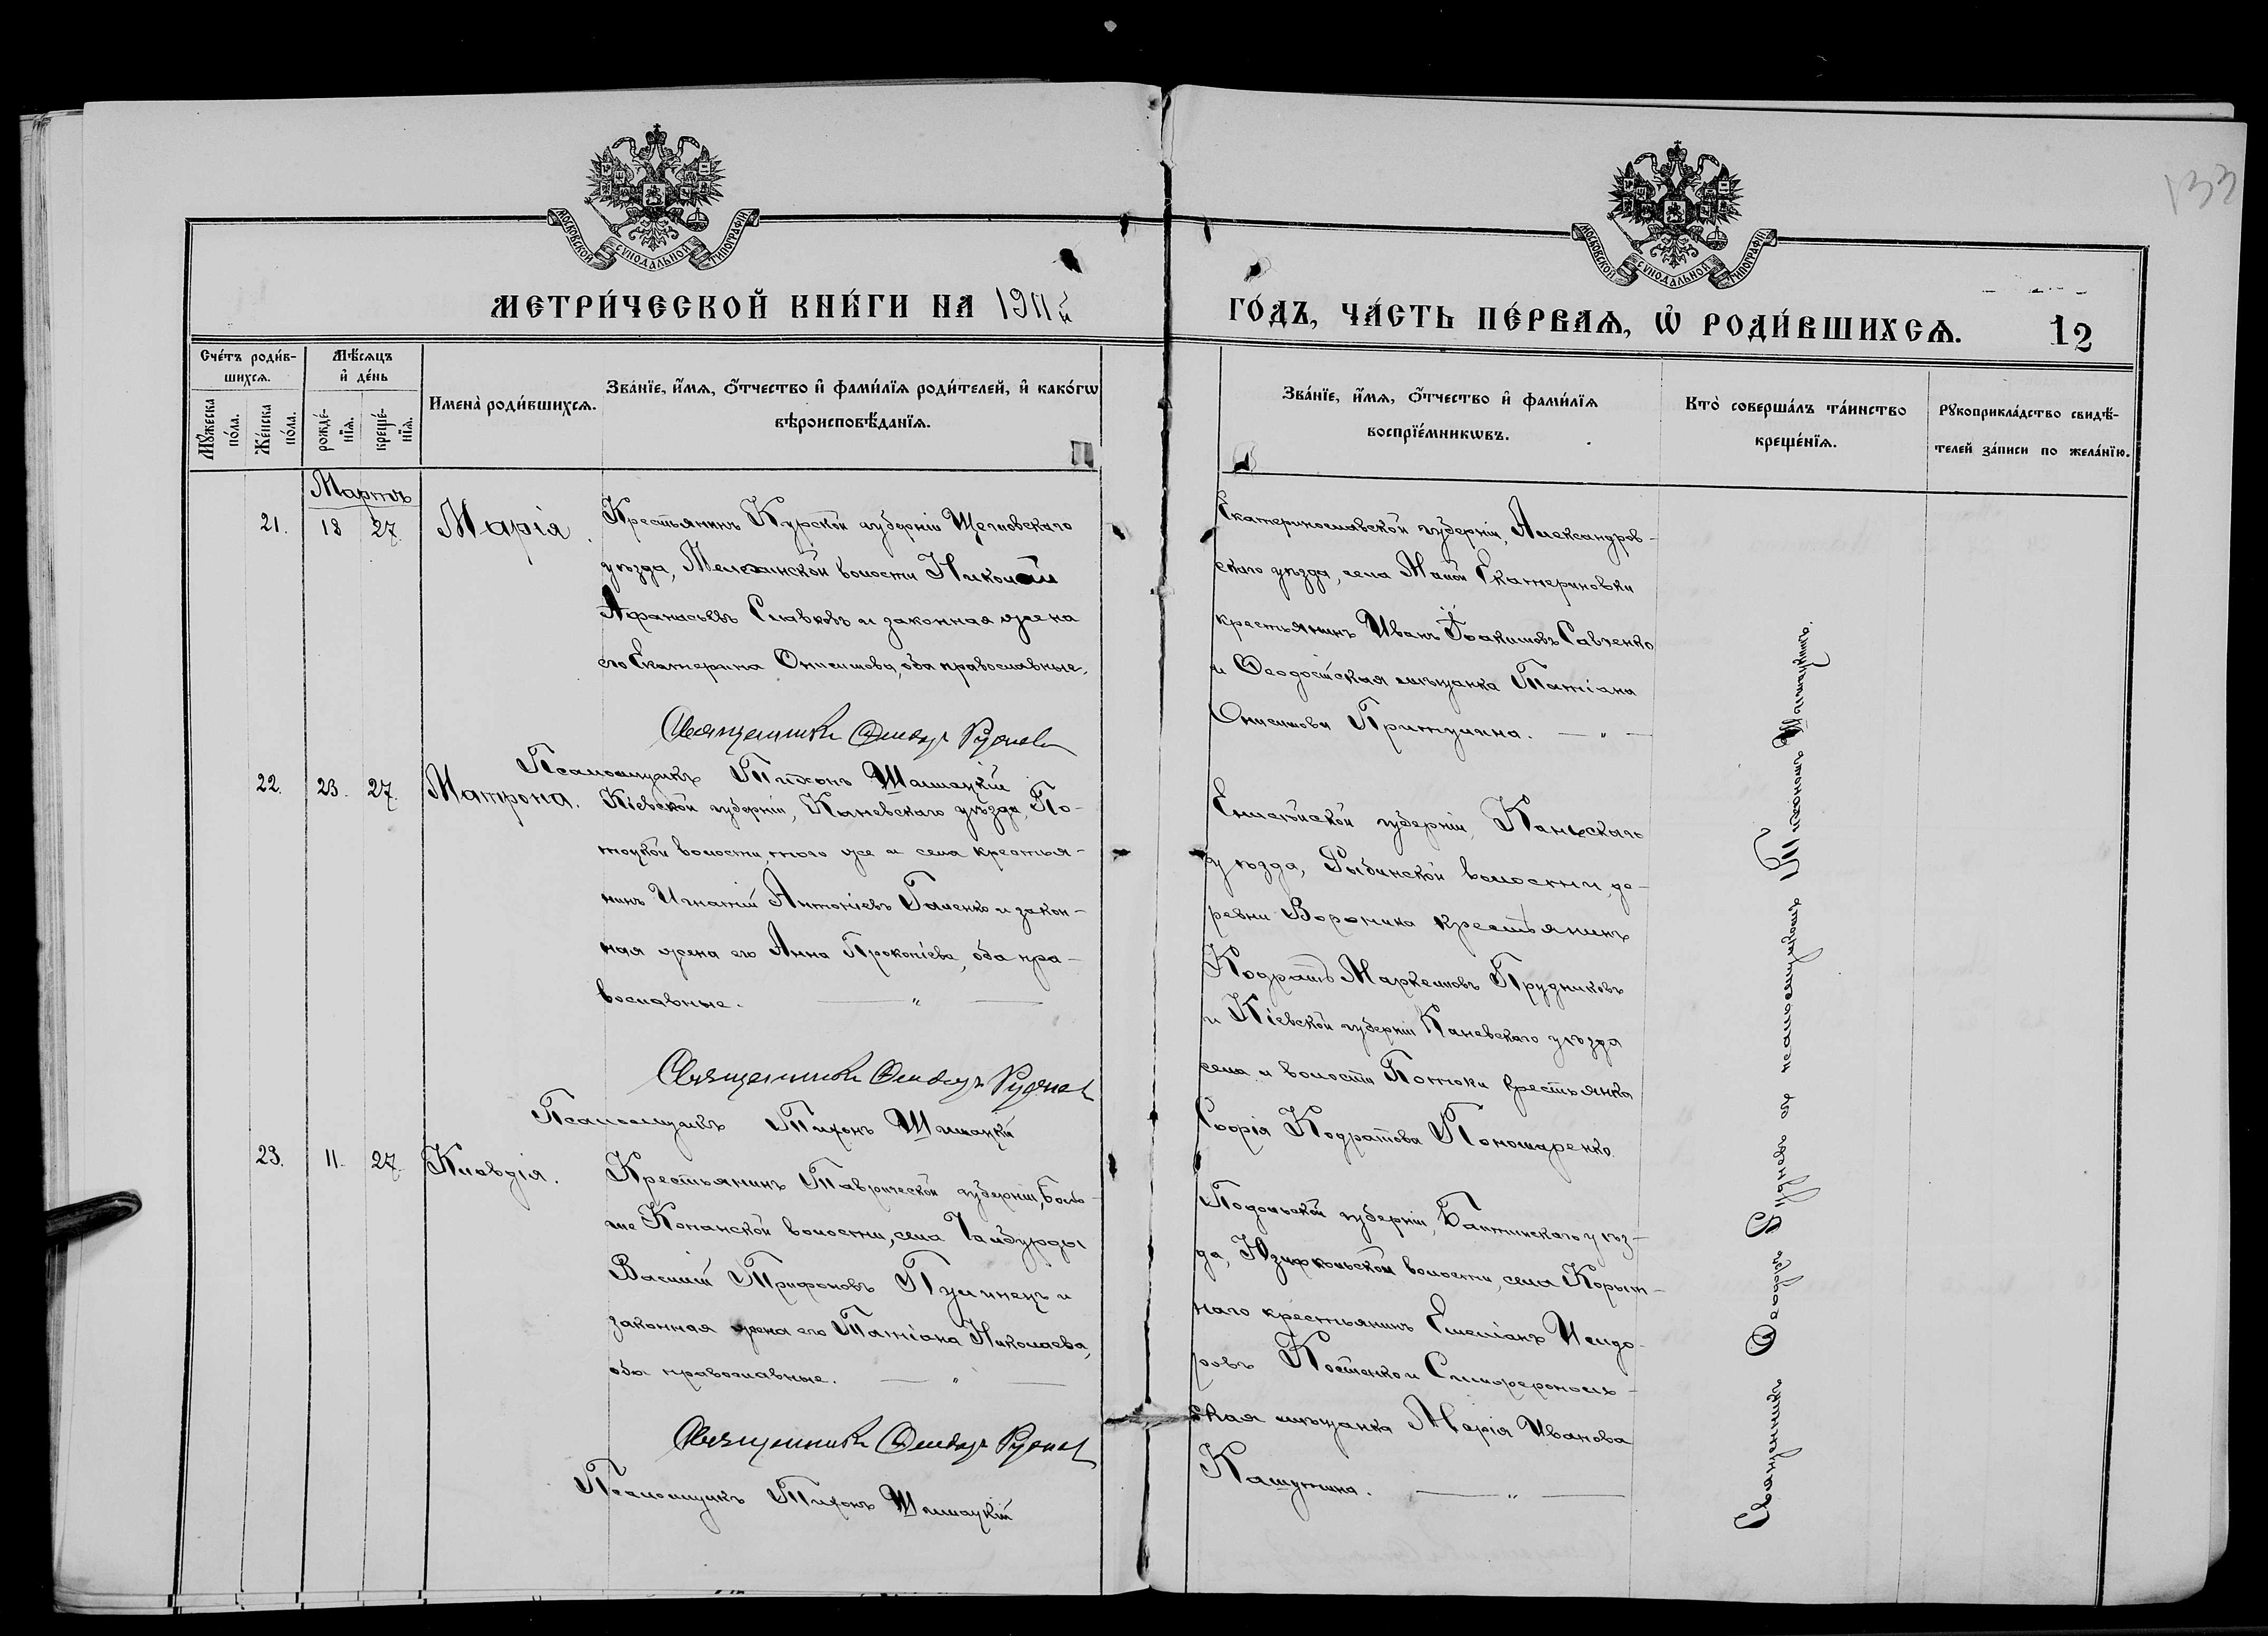 133
МОСКОВСКОЙ СѴНОДАЛЬНОЙ ТИПОГРАФІИ
МОСКОВСКОЙ СѴНОДАЛЬНОЙ ТИПОГРАФІИ
МЕТРИ́ЧЕСКОЙ КНИ́ГИ НА 1911й
ГО́ДЪ, ЧА́СТЬ ПЕ́РВАѦ, Ѡ҆ РОДИ́ВШИХСѦ.
12
Сче́тъ роди́в-
шихсѧ.
Мꙋ́жеска
по́ла.
Же́нска
по́ла.
Мѣ́сѧцъ
и҆ де́нь
рожде́-
нїѧ.
креще́-
нїѧ.
Имена̀ роди́вшихсѧ.
Зва́нїе, и҆́мѧ, ѻ҆́тчество и҆ фами́лїѧ роди́телей, и҆ како́гѡ
вѣроисповѣ́данїѧ.
Зва́нїе, и҆́мѧ, ѻ҆́тчество и҆ фами́лїѧ
воспрїе́мникѡвъ.
Кто̀ соверша́лъ та́инство
креще́нїѧ.
Рꙋкоприкла́дство свидѣ́-
телей за́писи по жела́нїю.
Мартъ
21. 18 27. Марія.
Крестьянинъ Курской губерніи Щегловскаго
уѣзда, Мелехинской волости Николай
Афанасьевъ Славковъ и законная жена
его Екатерина Онисимова, оба православные.
Священникъ Ѳеодоръ Рудневъ
Псаломщикъ Тихонъ Шишацкій
Екатеринославской губерніи, Александров-
скаго уѣзда, села Малой Екатериновки
крестьянинъ Иванъ Іоакимовъ Савченко
и Ѳеодосійская мѣщанка Татіана
Онисимова Притулина. — „ —
22. 23. 27. Матрона.
Кіевской губерніи, Каневскаго уѣзда, По-
тоцкой волости, того же и села крестья-
нинъ Игнатій Антоніевъ Гаценко и закон-
ная жена его Анна Прокопіева, оба пра-
вославные. — „ —
Священникъ Ѳеодоръ Рудневъ
Псаломщикъ Тихонъ Шишацкій
Енисейской губерніи, Каньскаго
уѣзда, Рыбинской волости, де-
ревни Воронина крестьянинъ
Кодратъ Маркеловъ Прудниковъ
и Кіевской губерніи Каневскаго уѣзда
села и волости Потоки крестьянка
Софія Кодратова Пономаренко.
23. 11. 27. Клавдія.
Крестьянинъ Таврической губерніи, Боль-
ше Копанской волости, села Чалбурды
Василій Трифоновъ Пулинецъ и
законная жена его Татіана Николаева,
оба православные. — „ —
Священникъ Ѳеодоръ Рудневъ
Псаломщикъ Тихонъ Шишацкій
Подольской губерніи, Балтинскаго уѣз-
да, Юзефпольской волости, села Корыт-
наго крестьянинъ Емеліанъ Исидо-
ровъ Костенко и Симферополь-
ская мѣщанка Марія Иванова
Кашутина. — „ —
Священникъ Ѳеодоръ Рудневъ съ псаломщикомъ Тихономъ Шишацкимъ.